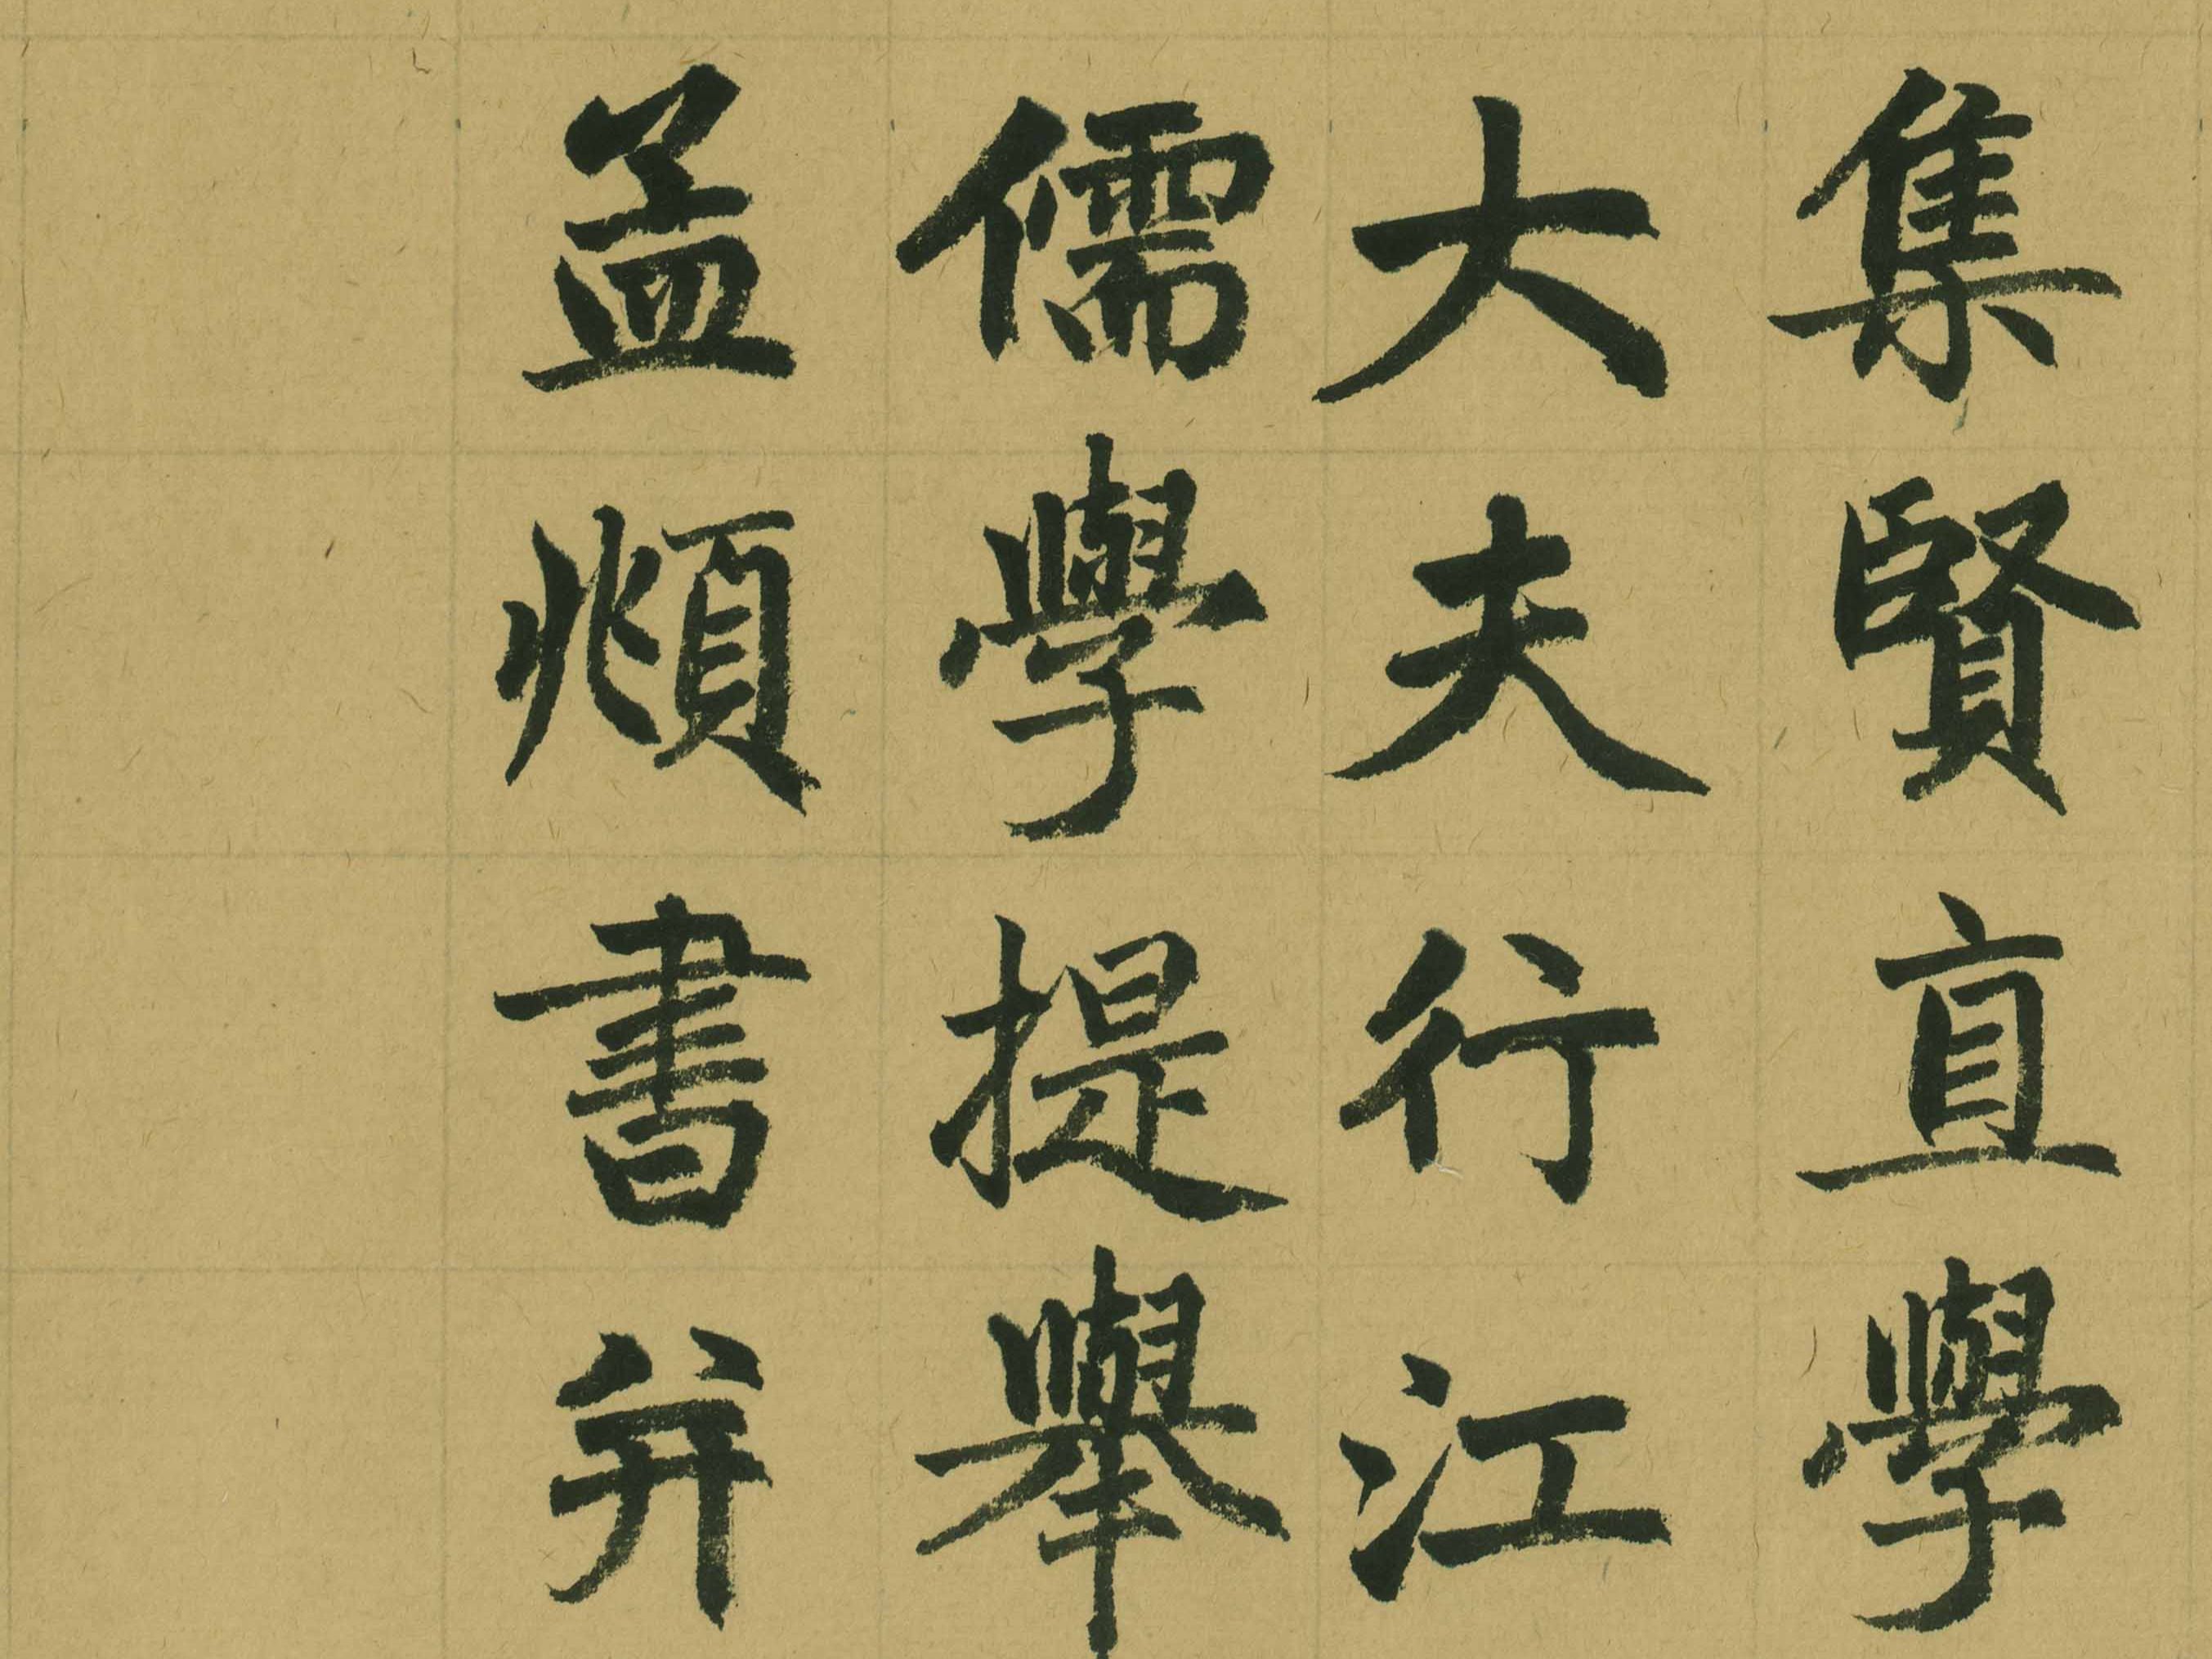 集賢直學
大夫行江
儒學提舉
孟頫書并